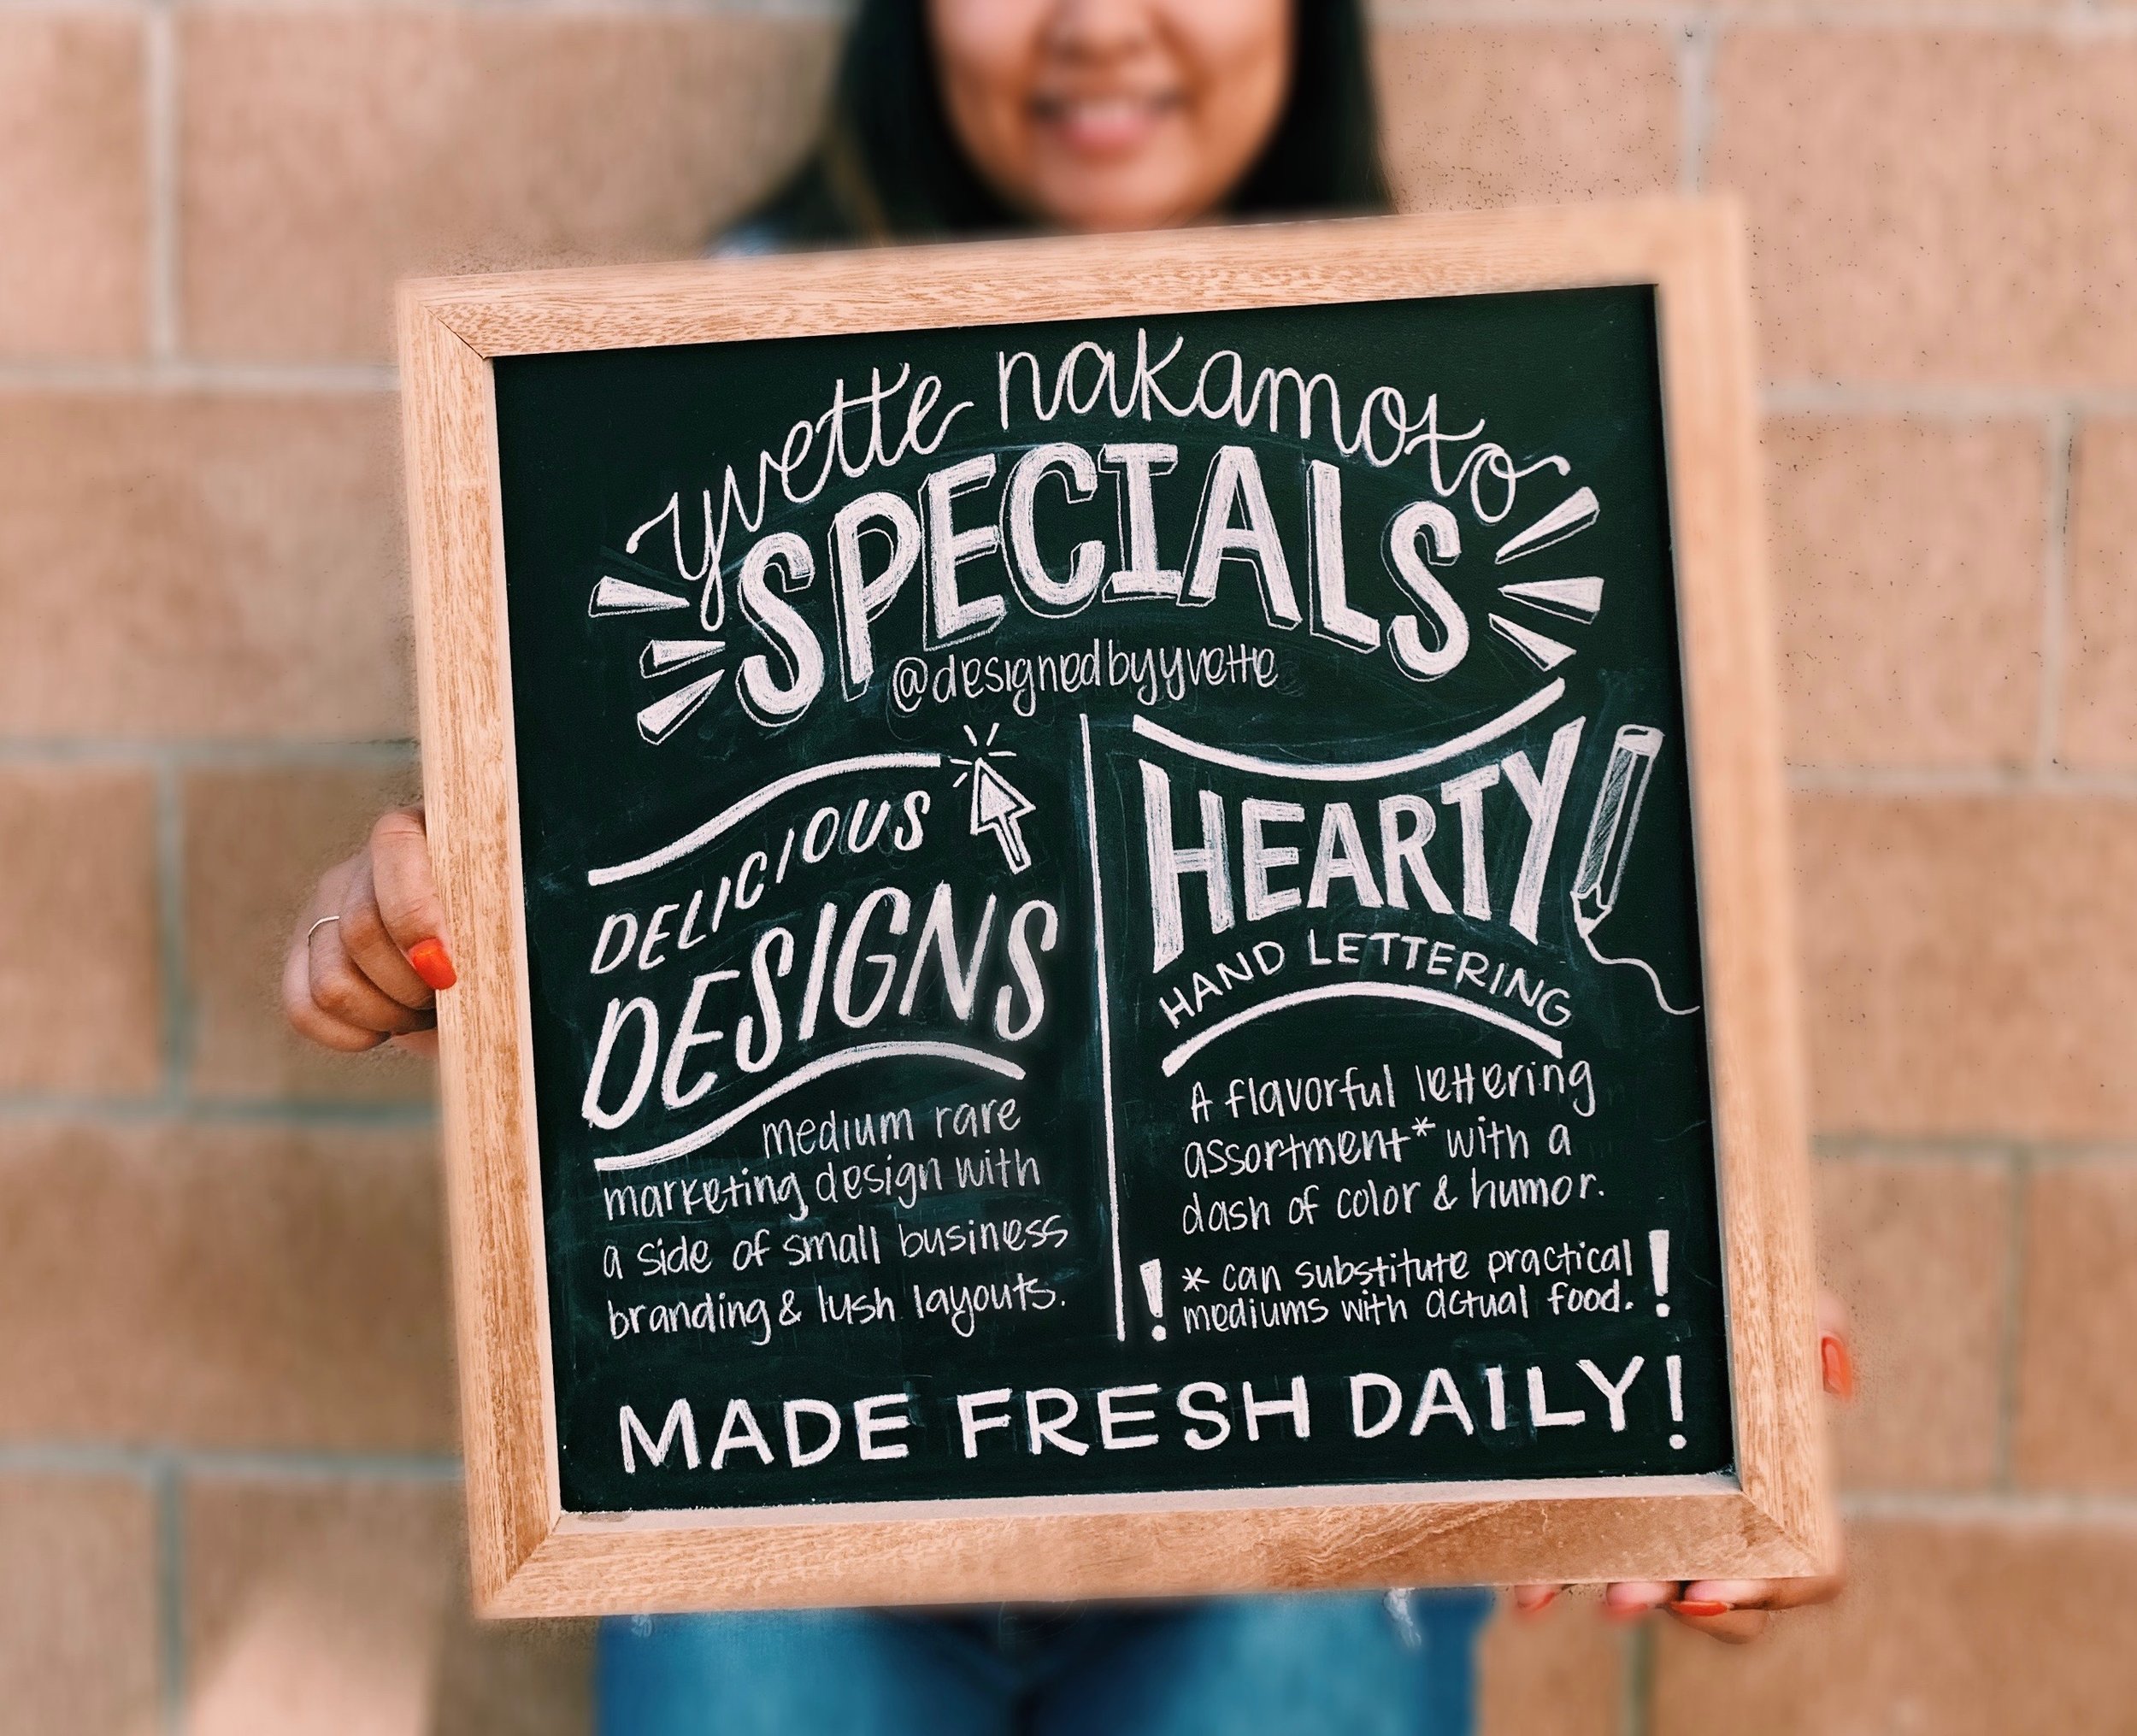 yvette nakamoto
SPECIALS
@designedbyyvette
DELICIOUS
DESIGNS
medium rare
marketing design with
a side of small business
branding & lush layouts.
HEARTY
HAND LETTERING
A flavorful lettering
assortment* with a
dash of color & humor.
! * can substitute practical !
mediums with actual food.
MADE FRESH DAILY!